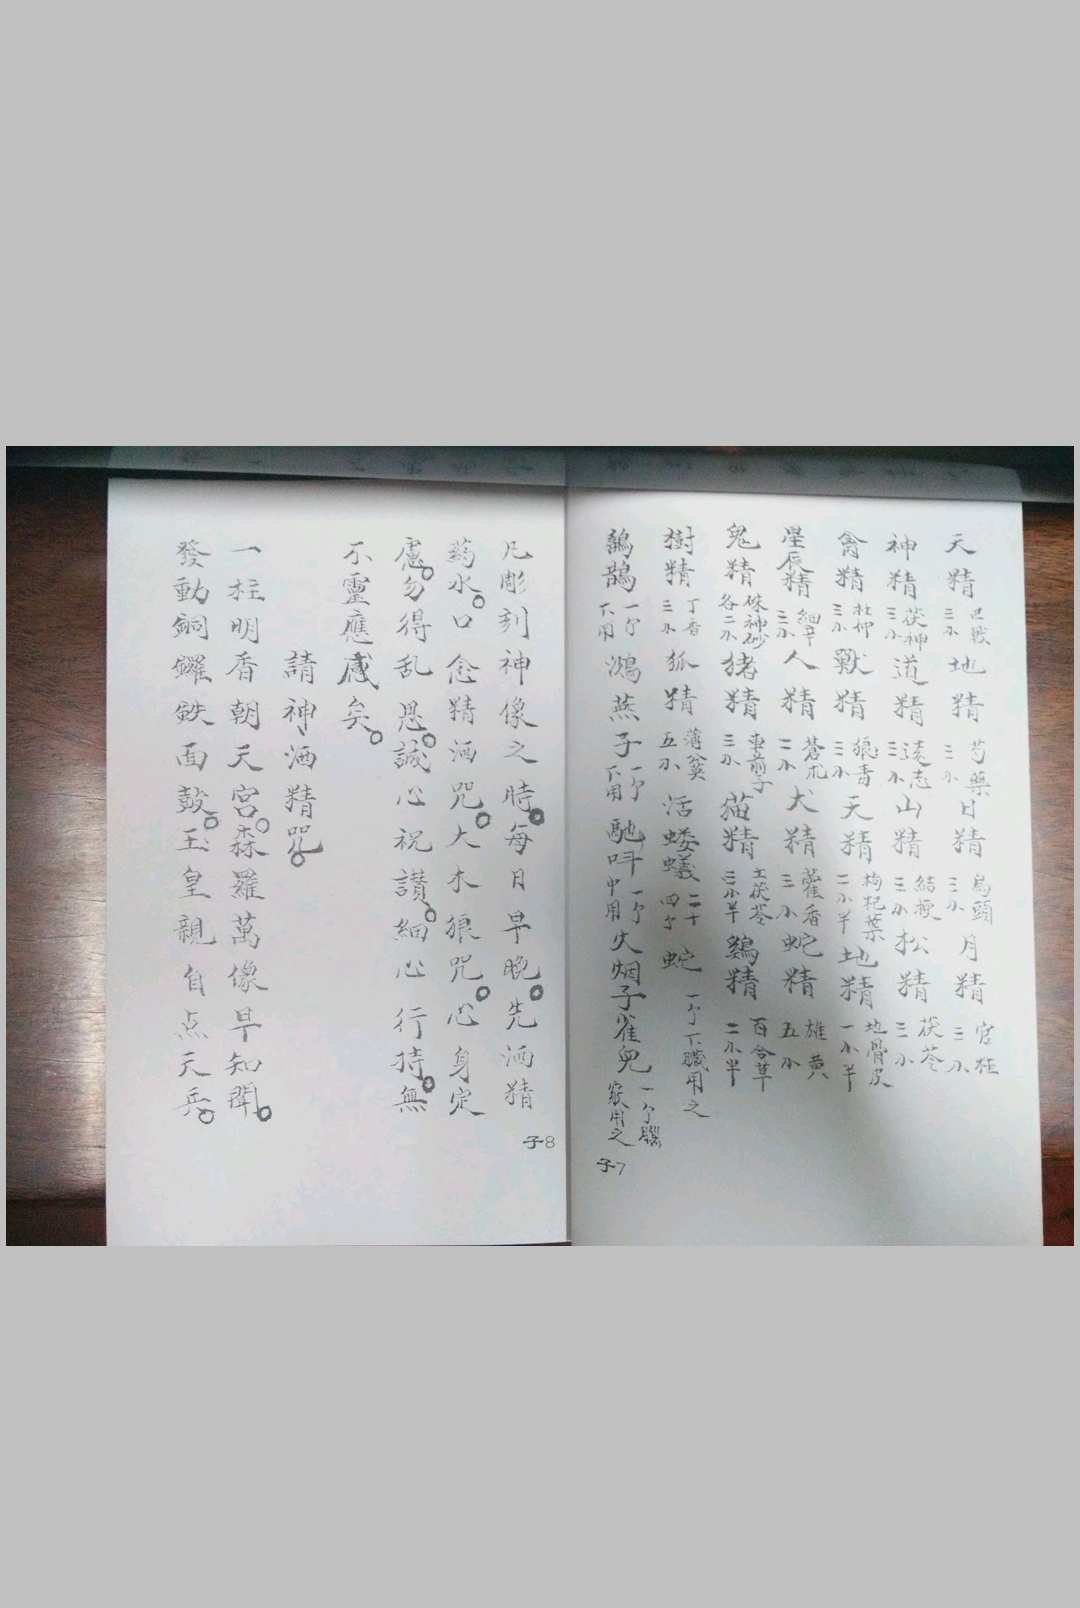 天精 三小 地精 芍藥 三小 日精 烏頭 三小 月精 官桂 三小
神精 茯神 三小 道精 遠志 三小 山精 結梗 三小 松精 茯苓 三小
禽精 三小 獸精 狼毒 三小 天精 枸杞葉 二小半 地精 地骨皮 一小半
星辰精 細辛 三小 人精 蒼朮 二小 犬精 藿香 三小 蛇精 雄黃 五小
鬼精 硃神砂 各二小 猪精 車前子 三小 猫精 土茯苓 三小半 鷄精 百合草 二小半
樹精 丁香 三小 狐精 薄 五小 活螻蟻 二十四个 蛇 一个下臟用之
鵲 一个下用 燕子 一个下用 一个中用 烟子雀兒 一个 用之
子7
凡彫刻神像之時。每日早晚。先洒精
葯水。口念精洒咒。大木狼咒。心身定
慮。勿得乱思。誠心祝讚。細心行持。無
不靈應感矣。
請神洒精咒。
一柱明香朝天宮。森羅萬像早知聞。
發動銅鑼鉄面鼓。玉皇親自点天兵。
子8